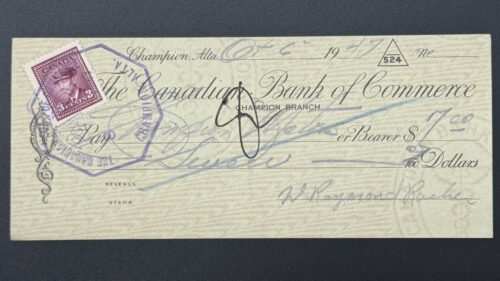 Champion, Alta. Oct 6 1947 No
524
The Canadian Bank of Commerce
CHAMPION BRANCH
Pay or Bearer $ 7.00
Seven 00/100 Dollars
REVENUE
STAMP
W Raymond
CANADA
3 CENTS 3
CHAMPION ALTA.
THE CANADIAN